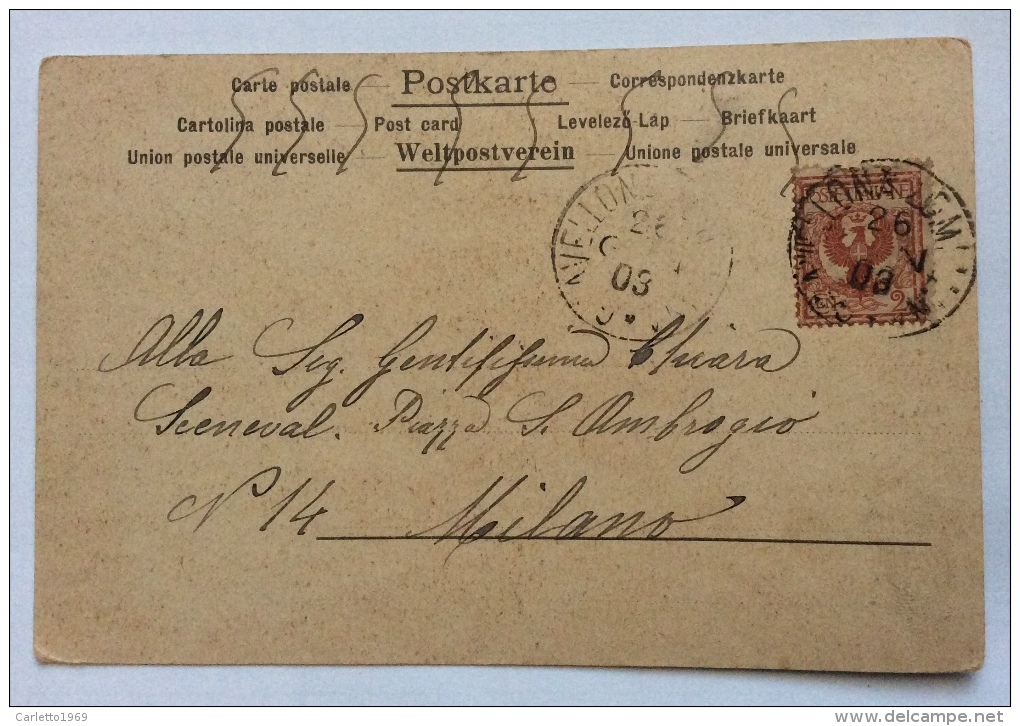 Carte postale — Postkarte — Correspondenzkarte
Cartolina postale — Post card — Levelező-Lap — Briefkaart
Union postale universelle — Weltpostverein — Unione postale universale
26
03
26
03
2
Alla Sig. Gentilissima Chiara
Seeneval. Piazza S. Ambrogio
N° 14 Milano
Carletto1969
delcampe.net